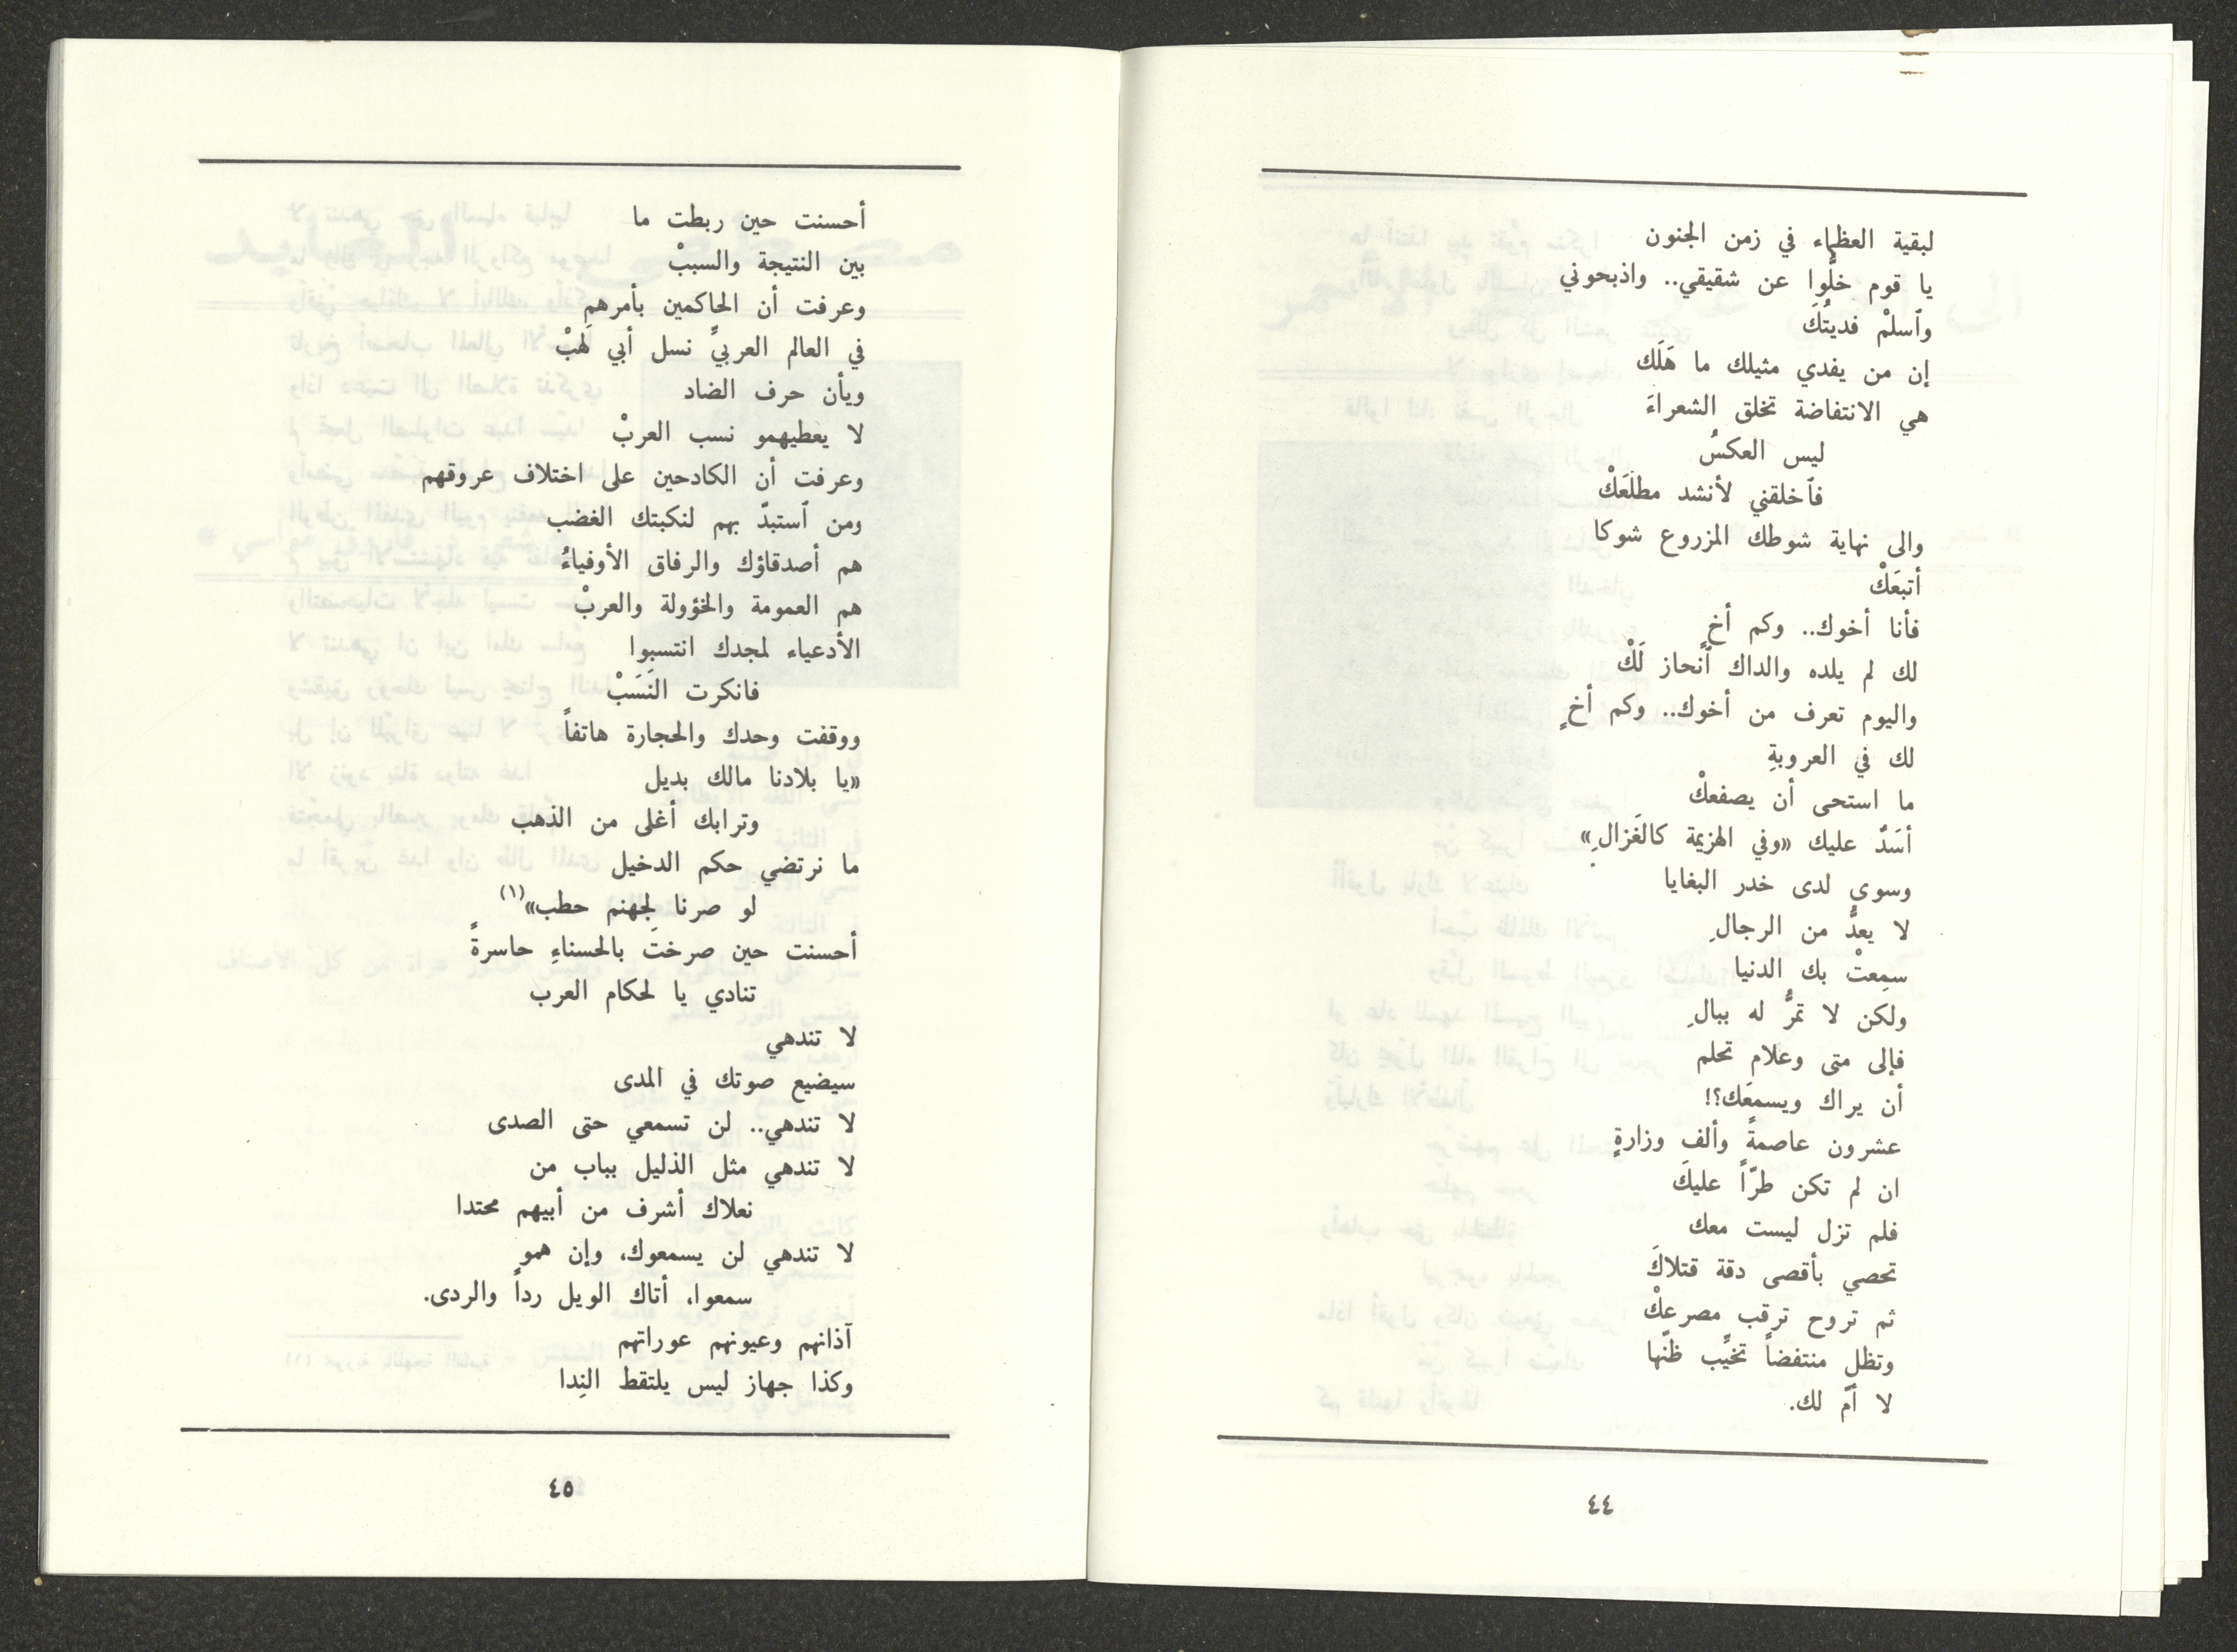 لبقية العظماء في زمن الجنون
يا قوم خلُّوا عن شقيقي.. واذبحوني
وٱسلمْ فديتُكَ
إن من يفدي مثيلك ما هَلَك
هي الانتفاضة تخلق الشعراءَ
ليس العكسُ
فٱخلقني لأنشد مطلَعَكْ
والى نهاية شوطك المزروع شوكا
أتبعَكْ
فأنا أخوك.. وكم أخٍ
لك لم يلده والداك ٱنحاز لَكْ
واليوم تعرف من أخوك.. وكم أخٍ
لك في العروبةِ
ما استحى أن يصفعكْ
أسَدٌ عليك «وفي الهزيمة كالغَزالِ»
وسوى لدى خدر البغايا
لا يعدُّ من الرجالِ
سمِعتْ بك الدنيا
ولكن لا تمرُّ له ببالِ
فإلى متى وعلام تحلم
أن يراك ويسمعَك؟!
عشرون عاصمةً وألف وزارةٍ
ان لم تكن طرّاً عليكَ
فلم تزل ليست معك
تحصي بأقصى دقة قتلاكَ
ثم تروح ترقب مصرعكْ
وتظل منتفضاً تخيِّب ظنّها
لا أمّ لك.
٤٤
أحسنت حين ربطت ما
بين النتيجة والسببْ
وعرفت أن الحاكمين بأمرهم
في العالم العربيِّ نسل أبي لَهَبْ
وبأن حرف الضاد
لا يعطيهمو نسب العربْ
وعرفت أن الكادحين على اختلاف عروقهم
ومن ٱستبدّ بهم لنكبتك الغضب
هم أصدقاؤك والرفاق الأوفياءُ
هم العمومة والخؤولة والعربْ
الأدعياء لمجدك انتسبوا
فانكرت النَسَبْ
ووقفت وحدك والحجارة هاتفاً
«يا بلادنا مالك بديل
وترابك أغلى من الذهب
ما نرتضي حكم الدخيل
لو صرنا لجهنم حطب»(١)
أحسنت حين صرختَ بالحسناءِ حاسرةً
تنادي يا لحكام العرب
لا تندهي
سيضيع صوتك في المدى
لا تندهي.. لن تسمعي حتى الصدى
لا تندهي مثل الذليل بباب من
نعلاك أشرف من أبيهم محتدا
لا تندهي لن يسمعوك، وإن همو
سمعوا، أتاك الويل رداً والردى.
آذانهم وعيونهم عوراتهم
وكذا جهاز ليس يلتقط النِدا
٤٥